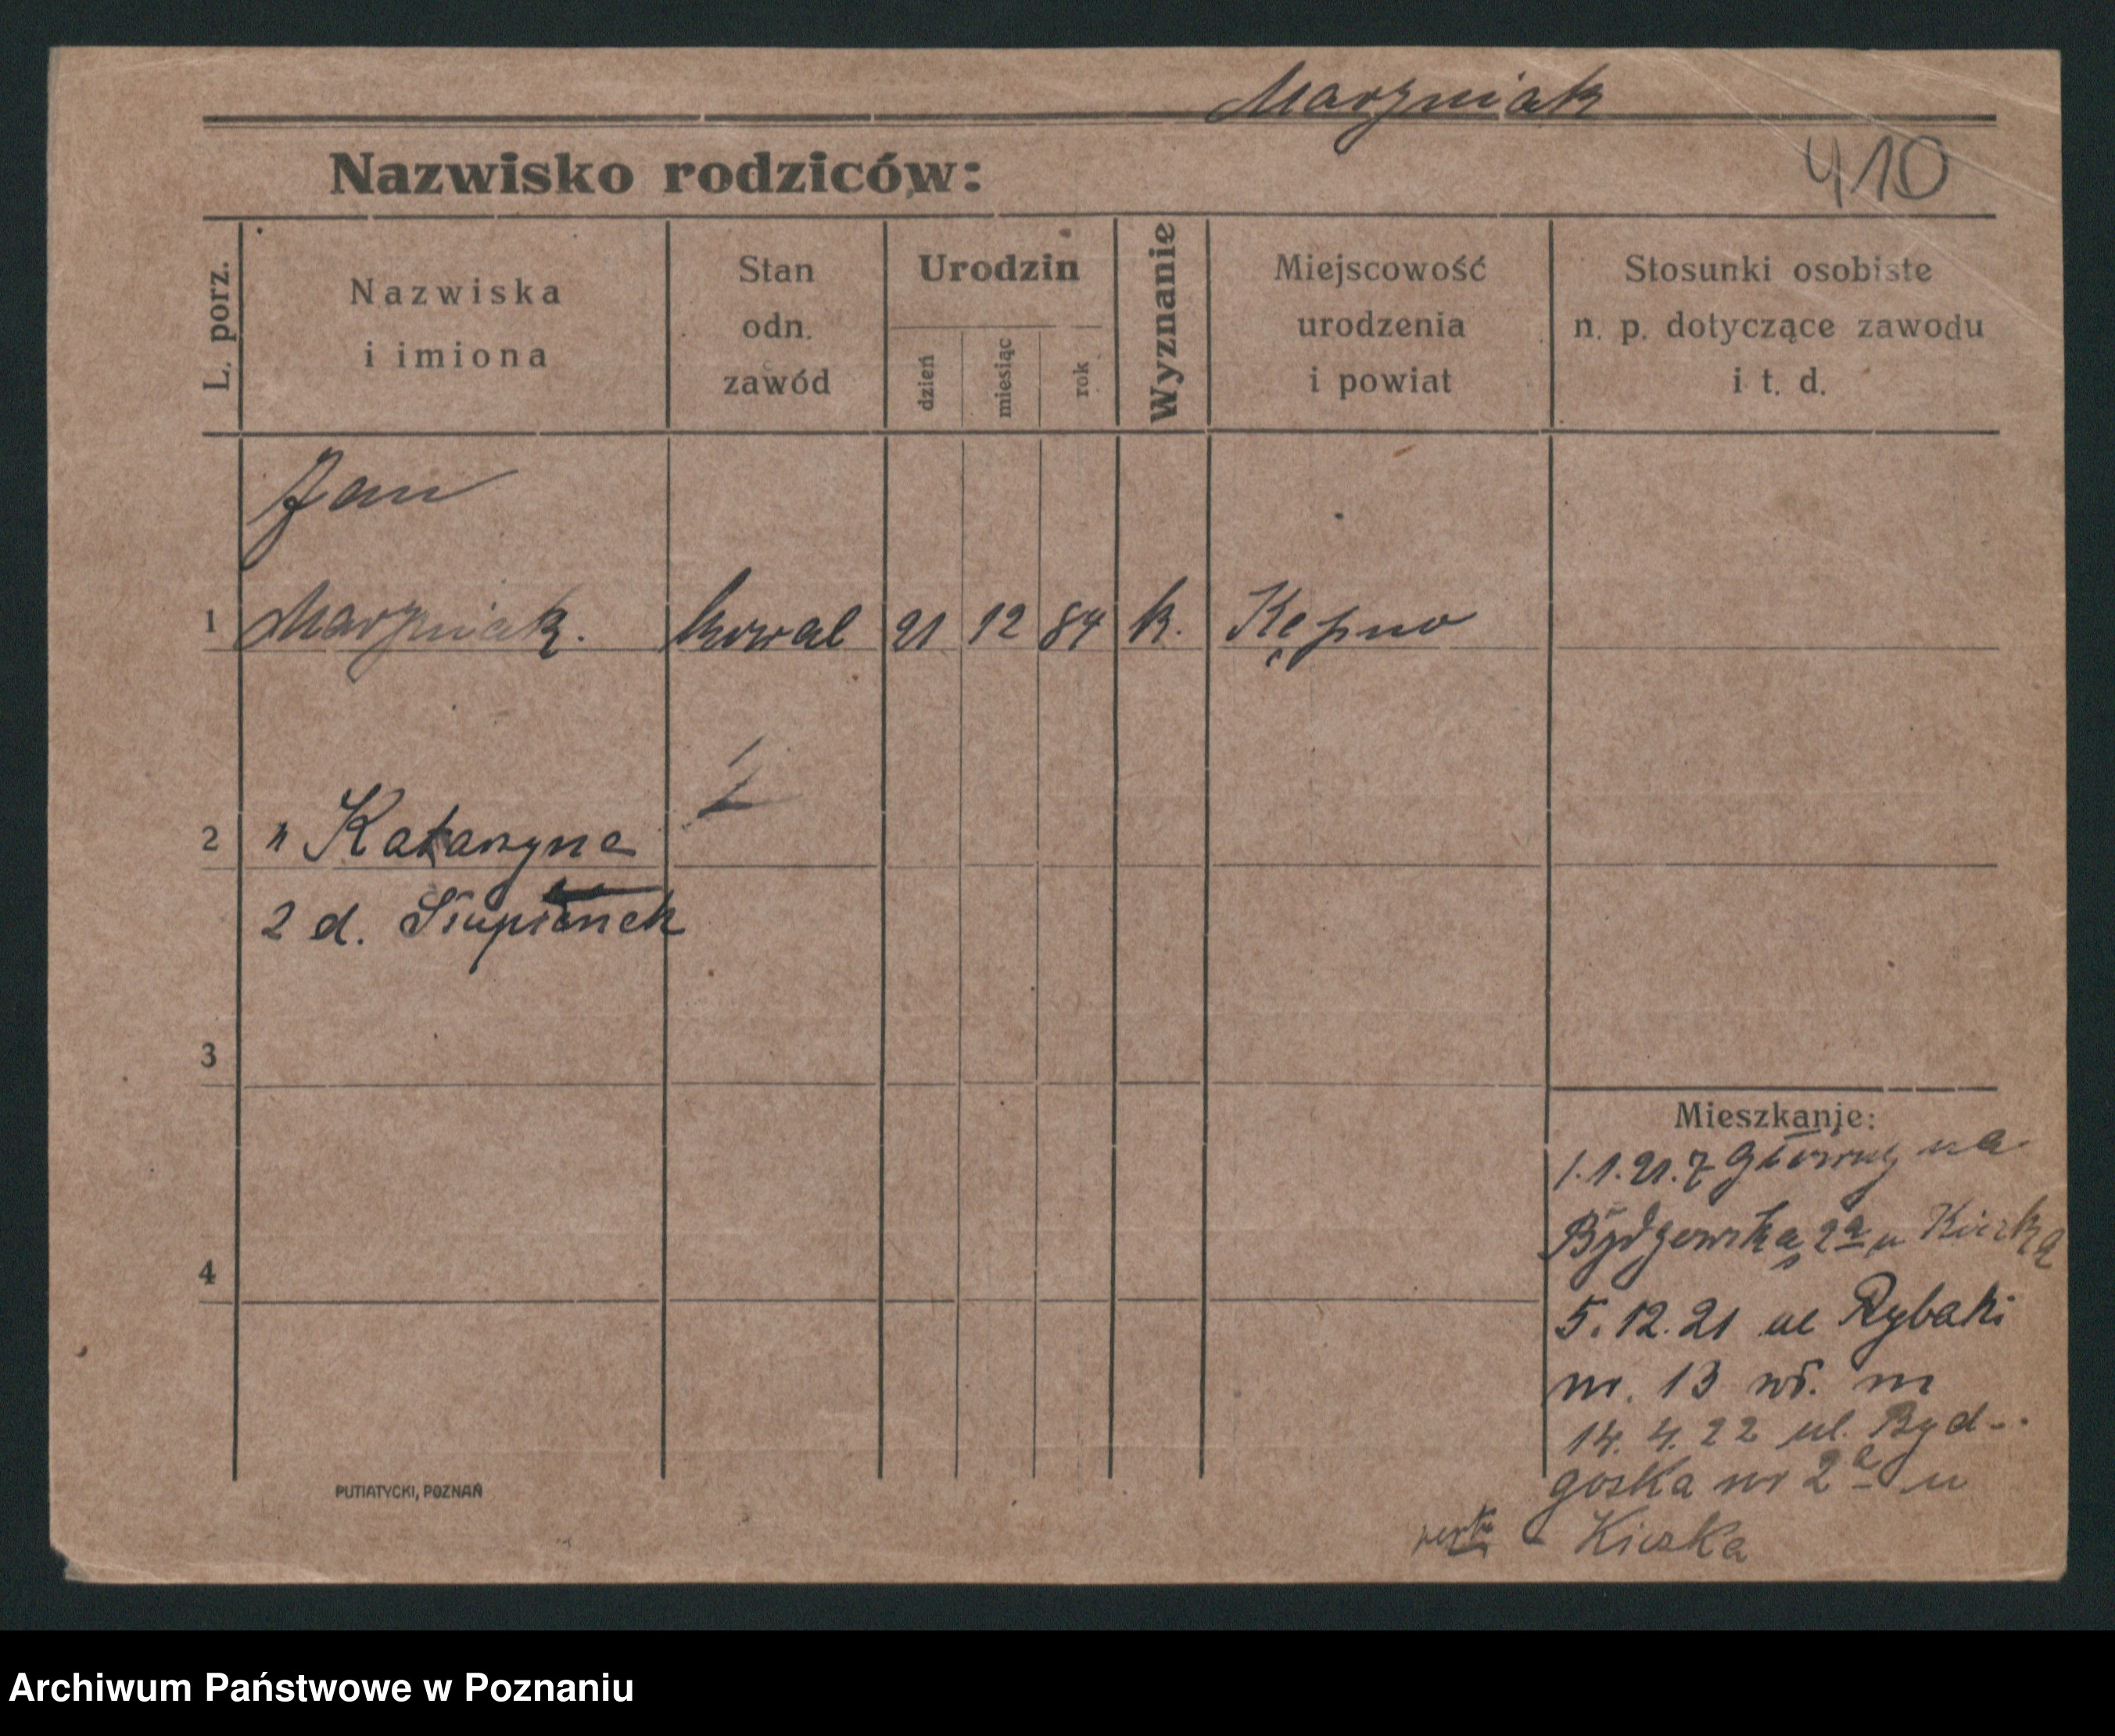 Marzniak
Nazwisko rodziców:
410
L. porz.
Nazwiska
i imiona
Stan
odn.
zawód
Urodzin
dzień
miesiąc
rok
Wyznanie
Miejscowość
urodzenia
i powiat
Stosunki osobiste
n. p. dotyczące zawodu
i t. d.
Jan
1 Marzniak. kowal 21 12 84 k. Kępno
2 " Katarzyna
2 d.
3
4
Mieszkanie:
1.1.21. z Główny na
2a u Kiczka
5.12.21 ul Rybaki
nr. 13 m
14. 4. 22 ul. Byd-
goska nr 2a u
Kiczka
PUTIATYCKI, POZNAŃ
Archiwum Państwowe w Poznaniu